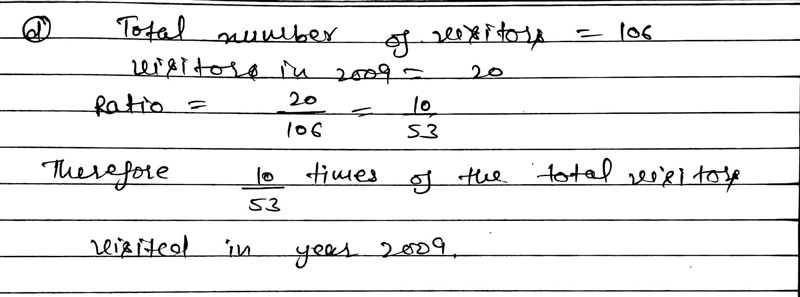 (d) Total number of visitors = 106
visitors in 2009 = 20
Ratio = 20/106 = 10/53
Therefore 10/53 times of the total visitors
visited in year 2009.